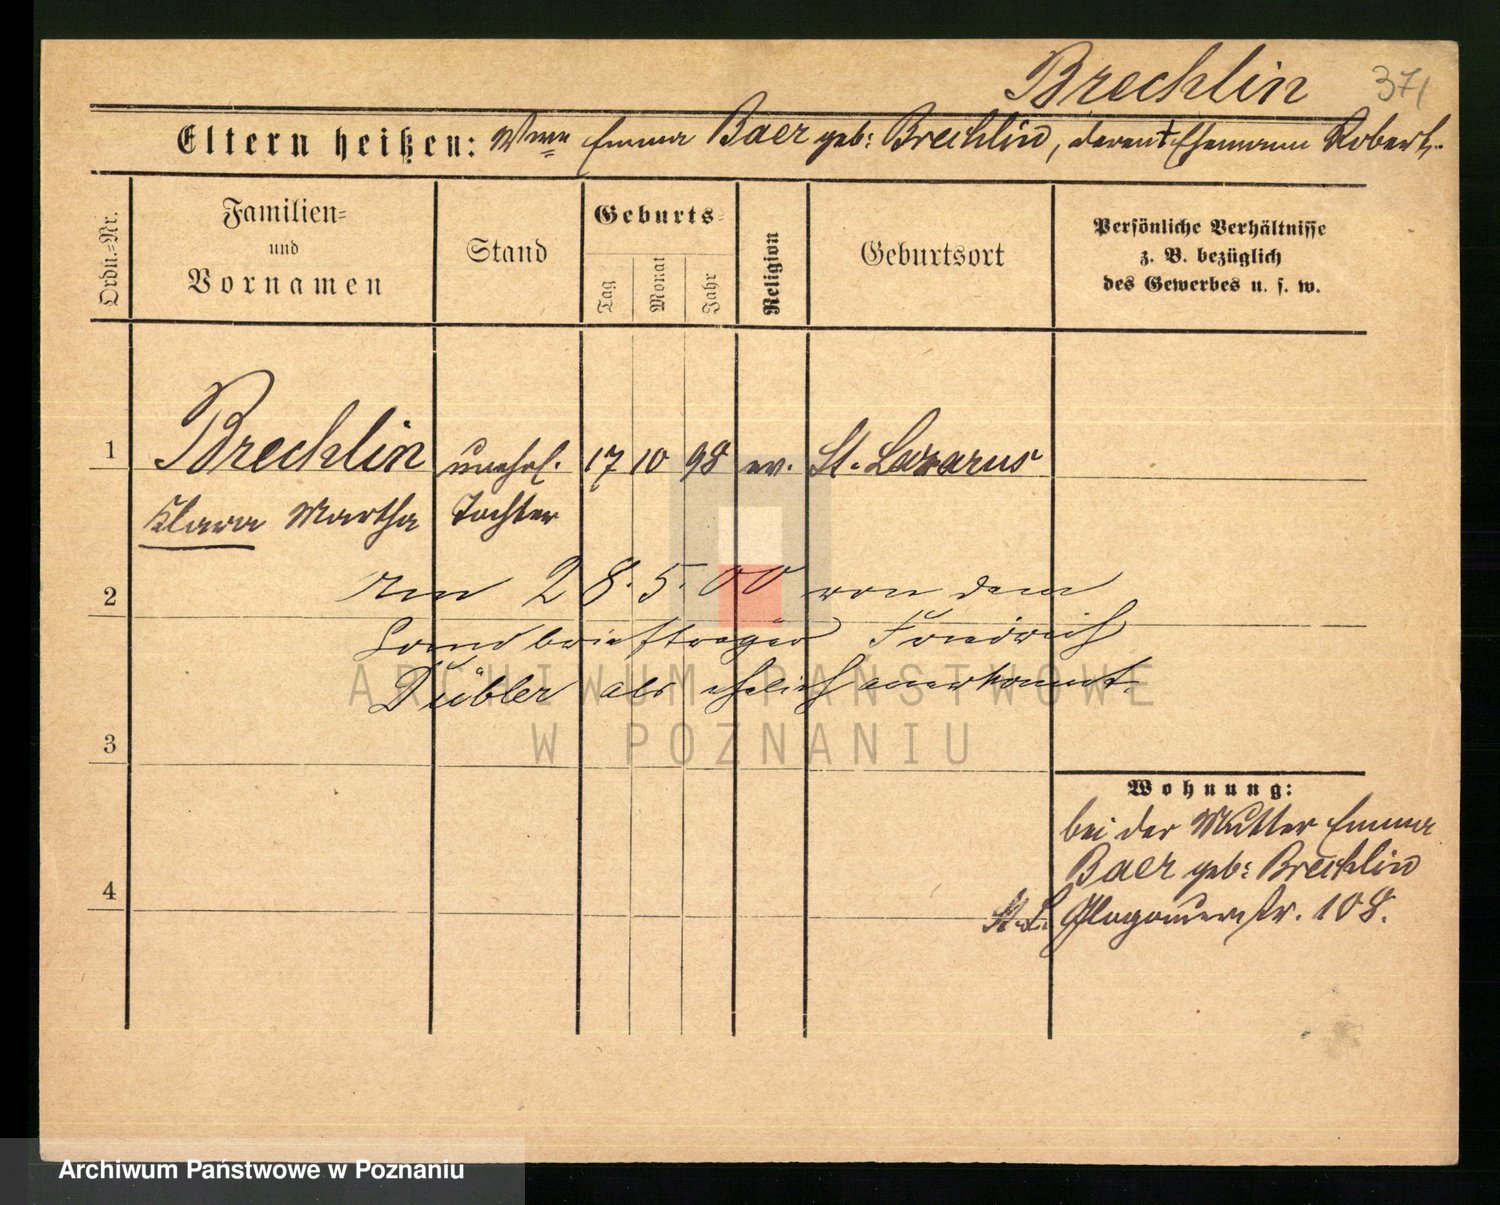 Brechlin 371
Eltern heißen: Wwe Emma Baer geb: Brechlin, deren † Ehemann Robert.
Ordn.=Nr.
Familien=
und
Vornamen
Stand
Geburts=
Tag
Monat
Jahr
Religion
Geburtsort
Persönliche Verhältnisse
z. B. bezüglich
des Gewerbes u. s. w.
1 Brechlin unehel. 17 10 98 ev. St. Lazarus
Klara Martha Tochter
2 Am 28.5.00 von dem
Landbriefträger Friedrich
Dübler als ehelich anerkannt.
ARCHIWUM PAŃSTWOWE
W POZNANIU
3
Wohnung:
bei der Mutter Emma
Baer geb: Brechlin
4 St. L. Glogauerstr. 108.
Archiwum Państwowe w Poznaniu